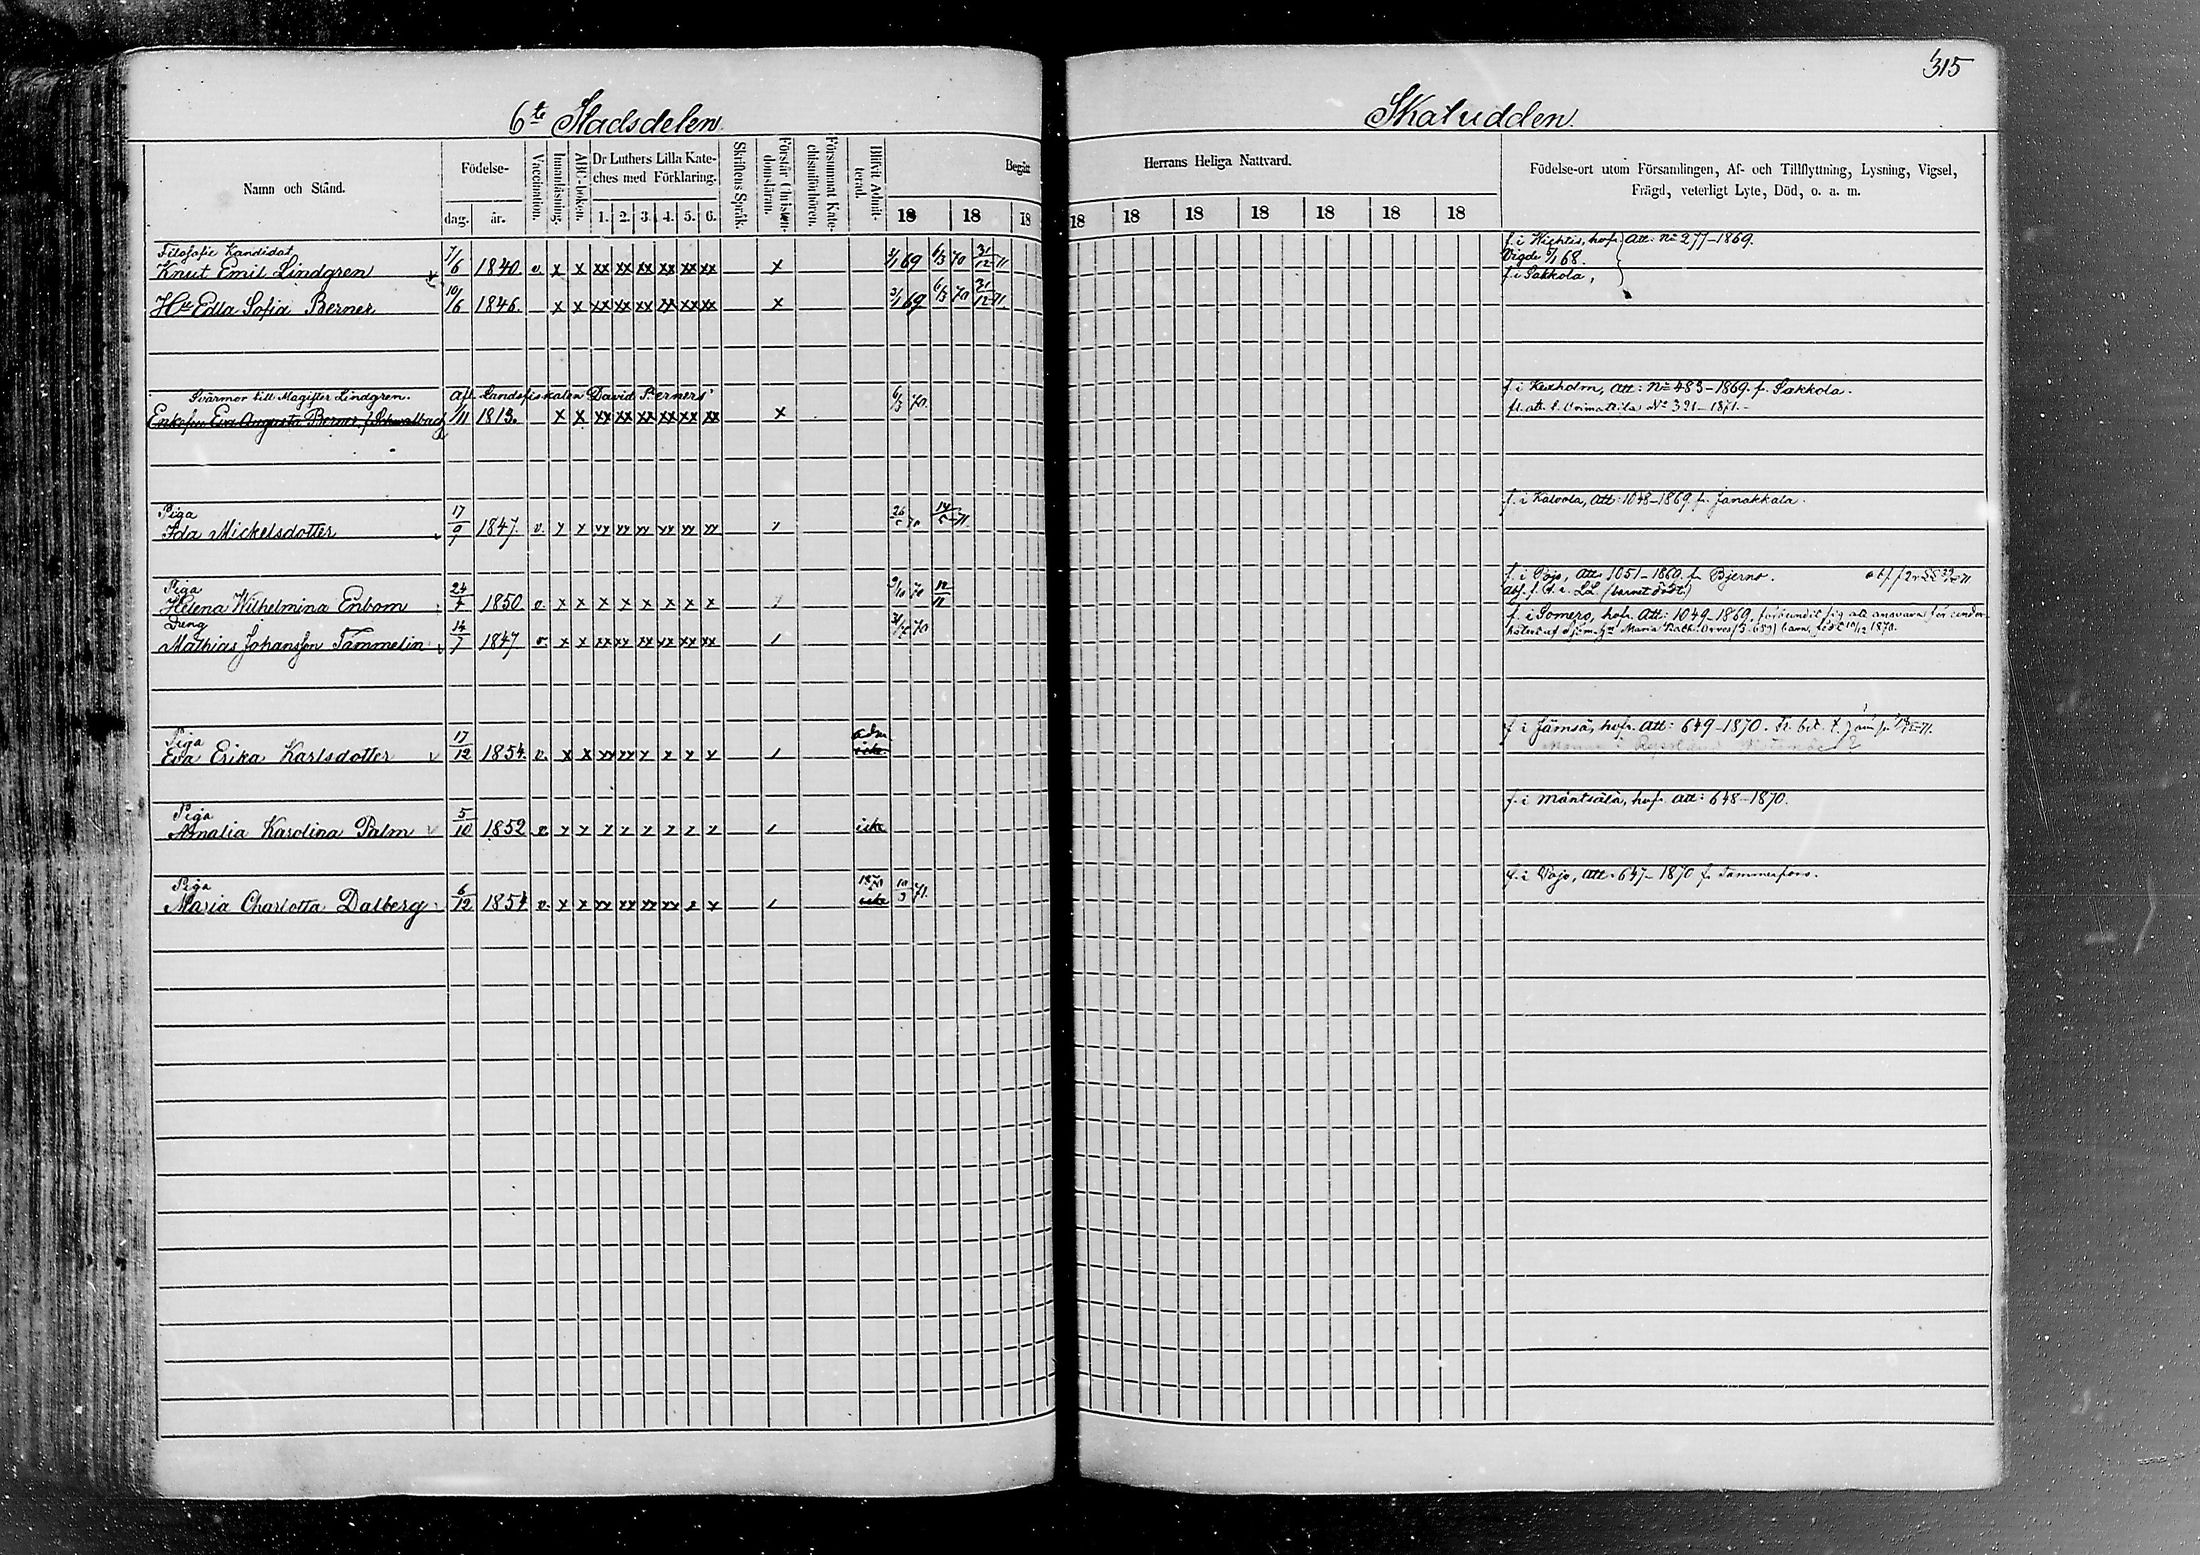 315
6te Stadsdelen.
Skatudden.
Namn och Stånd.
Födelse-
dag.
år.
Vaccination.
Innanläsning.
ABC-boken.
Dr Luthers Lilla Kate-
ches med Förklaring.
1. 2. 3. 4. 5. 6.
Skriftens Språk.
Förstår Christen-
domsläran.
Försummat Kate-
chismiförhören.
Blifvit Admit-
terad.
Begått
18 18 18
Herrans Heliga Nattvard.
18 18 18 18 18 18 18
Födelse-ort utom Församlingen, Af- och Tillflyttning, Lysning, Vigsel,
Frägd, veterligt Lyte, Död, o. a. m.
Filosofie Kandidat
Knut Emil Lindgren 7/6 1840. v. x x xx xx xx xx xx xx x 3/1 69 6/3 70 31/12 71.
f. i Wichtis, hofr. Att: No 277-1869.
Vigde 6/1 68.
Hu Edla Sofia Berner 10/6 1846. x x xx xx xx xx xx xx x 3/1 69 6/3 70 31/12 71.
f. i Sakkola,
Svärmor till Magister Lindgren. Afl. Landsfiskalen David Berners
Enkefru Eva Augusta Berner, f. Schwalbach 1/11 1813. x x xx xx xx xx xx xx x 6/3 70.
f. i Kexholm, Att: No 483-1869. fr. Sakkola.
fl. att. t. Orimattila No 321-1871.-
Piga
Ida Mickelsdotter 17/9 1847. v.
f. i Kalvola, Att: 1048-1869. fr. Janakkala.
Piga
Helena Wilhelmina Enbom 24/4 1850 v. x x x x x x x x 9/10 70 12/11
f. i Pojo, Att: 1051-1869. fr. Bjerno.
(barnet dödt.)
Dreng
Mathias Johansson Tammelin 14/7 1847 v. x x xx xx xx xx xx xx
f. i Somero, hofr. Att: 1049-1869, förbundit sig att ansvara för under-
hållet af Maria barn, född 10/12 1870.
Piga
Eva Erika Karlsdotter 17/12 1854. v. x x xx xx x x x x adm icke
f. i Jämsä, hofr. Att: 649-1870.
Piga
Amalia Karolina Palm 5/10 1852 v. icke
f. i Mäntsälä, hofr. Att: 648-1870.
Piga
Maria Charlotta Dalberg 6/12 1854 v. x x xx xx xx xx x x 1870 icke 10/3 71.
f. i Pojo, Att: 647-1870 fr. Tammerfors.